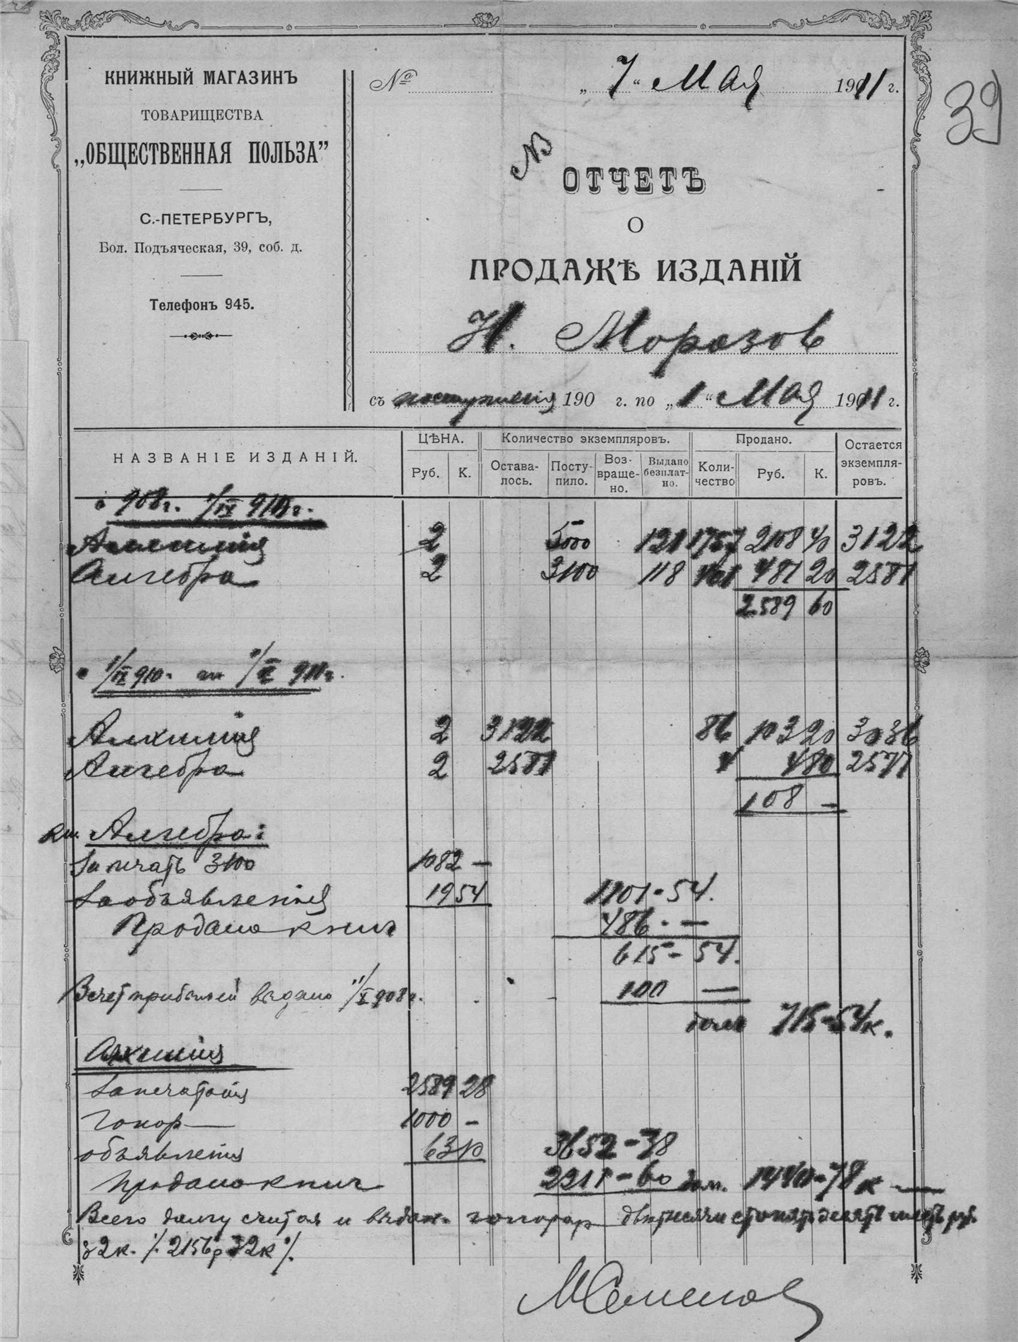 КНИЖНЫЙ МАГАЗИНЪ
ТОВАРИЩЕСТВА
„ОБЩЕСТВЕННАЯ ПОЛЬЗА”
С.-ПЕТЕРБУРГЪ,
Бол. Подъяческая, 39, соб. д.
Телефонъ 945.
№ „7“ Мая 1911 г.
39
NB
ОТЧЕТЪ
О
ПРОДАЖѢ ИЗДАНІЙ
Н. Морозов
съ поступленія 190 г. по „1“ Мая 1911 г.
НАЗВАНІЕ ИЗДАНІЙ. ЦѢНА. Количество экземпляровъ. Продано. Остается экземпля-ровъ.
Руб. К. Остава-лось. Посту-пило. Воз-враще-но. Выдано безплат-но. Коли-чество Руб. К.
с 908 г. 1/IX 910 г.
Алхимія 2 5000 121 1757 2108 40 3122
Алгебра 2 3100 118 401 481 20 2581
2589 60
с 1/IX 910 по 1/V 911 г.
Алхимія 2 3122 86 103 20 3036
Алгебра 2 2581 4 4 80 2577
108 –
Алгебра:
За печать 3100 1082 –
За объявленія 19 54 1101-54.
Продано книг 486 . –
615-54.
В счет прибылей выдано 1/X 908 г. 100 –
долг 715-54 к.
Алхимія
За печатаніе 2589 28
Гонор 1000 –
объявленія 63 10 3652-38
Продано книг 2211-60 долг. 1440-78 к
Всего долгу считая и выдан. гонорар две тысячи сто пятьдесят шесть руб.
32 к. /. 2156 р 32 к /.
МСеменов